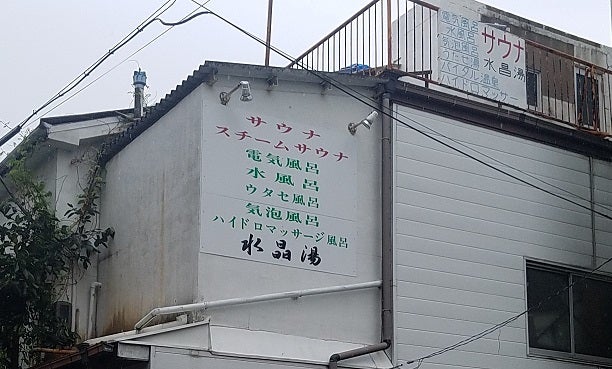 サウナ
スチームサウナ
電気風呂
水風呂
ウタセ風呂
気泡風呂
ハイドロマッサージ風呂
水晶湯
電気風呂
水風呂
気泡風呂
サウナ
水晶湯
ハイドロマッサ